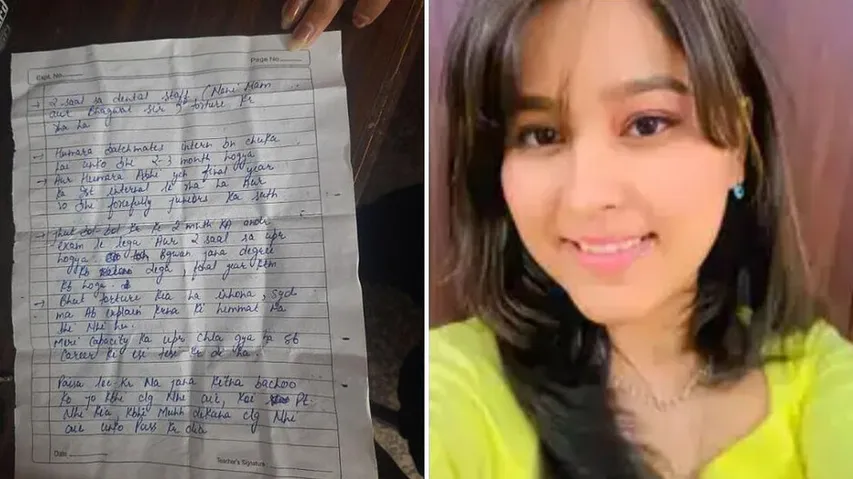 Expt. No.
Page No.
→ 2 saal sa dental staff (Noni Mam
aur Bhagwat Sir torture kr
rha ha
→ Humara batchmates intern bn chuka
hai unko bhi 2-3 month hogya
→ Aur Humara Abhi final year
ka 1st internal le rha ha Aur
so bhi forcefully juniors ka sath
→ bol-bol kr ke 2 month ka andr
exam le lega Aur 2 saal sa upr
hogya Bgwan jana degree
kb dega, final year kem
kb hoga.
→ Bhut torture kia ha inhona,
ma Ab explain krna ki himmat ha
he Nhi ha.
Meri capacity ka upr chla gya ha sb
Career ki kr de ha.
Paisa lee kr Na jana kitna bachoo
ko jo kbhi clg Nhi aie, koi Pt.
Nhi kia, kbhi Muhh dekana clg Nhi
aie unko Pass kr dia
Date
Teacher's Signature